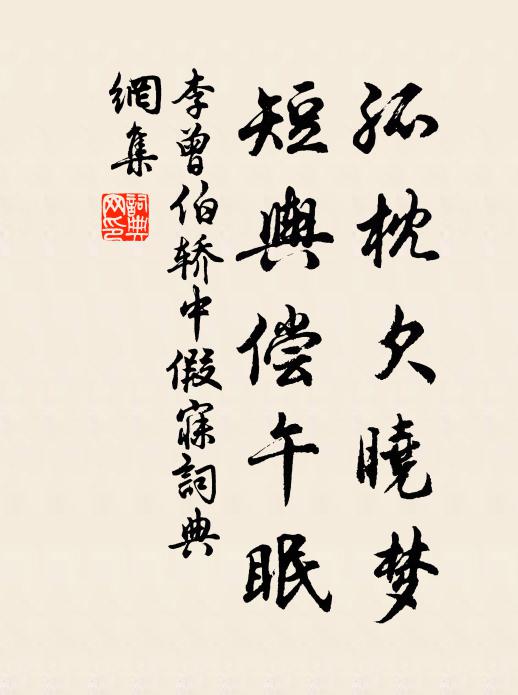 孤枕欠曉梦
短輿偿午眠
李曾伯轿中假寐詞典
網集
詞典
网印